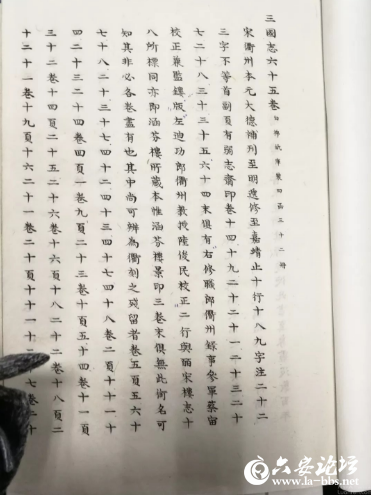 三國志六十五卷
宋衢州本元大德補刊至明遞修至嘉靖止十行十八九字注二十二
三字不等首副頁有弱志齋印卷十四十九二十二十一二十三二十
七二十八三十三十五六十四末俱有右修職郎衢州錄事參軍蔡宙
校正兼監鏤版左迪功郎衢州教授陸俊民校正二行與皕宋樓志十
八所標同亦即涵芬樓所藏本惟涵芬樓景印三卷末俱無此銜名可
知其非必各卷盡有也其中尚可辨為衢刻之殘留者卷五頁五六十
七十八二十三二十七二十四三十四七十四八卷二頁十十一十
四二十三二十四卷四頁一卷九頁二十三卷十頁五十四卷十一頁
三十二卷十四頁二十五二十六卷十六頁十八二十二卷十八頁二
十二十一卷十九頁十六二十一卷二十頁十十一十 七卷二十
六安論壇
www.la-bbs.net